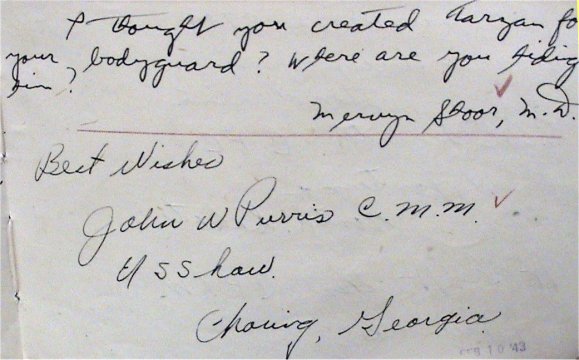 I thought you created Tarzan fo
your bodyguard? Where are you hidig
him?
Mervyn Stoor, M.D.
Best Wishes
John W Purris C.M.M.
USS Shaw.
Georgia
FEB 10 '43